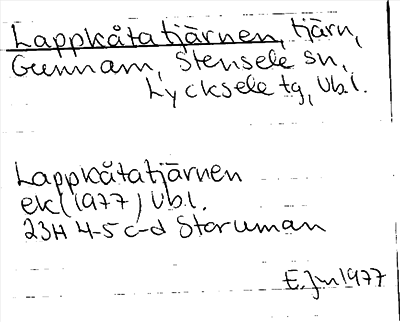 Lappkåtatjärnen, tjärn,
Gunnarn, Stensele sn,
Lycksele tg, Vbl.
Lappkåtatjärnen
ek (1977) Vbl.
23H 4-5 c-d Storuman
E. Jn 1977